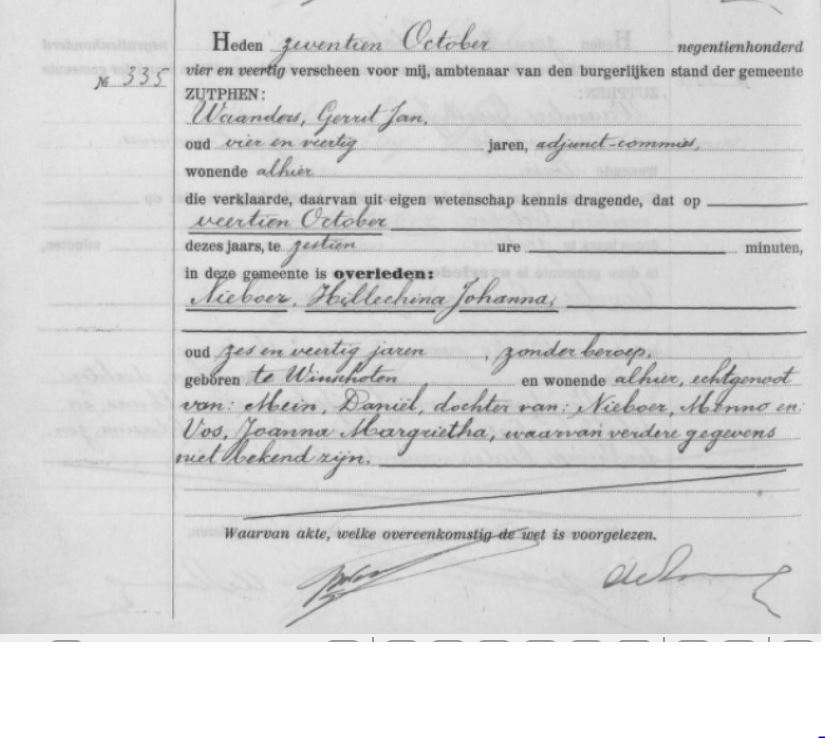 Heden zeventien October negentienhonderd
№ 335
vier en veertig verscheen voor mij, ambtenaar van den burgerlijken stand der gemeente
ZUTPHEN:
Waanders, Gerrit Jan,
oud vier en veertig jaren, adjunct-commies,
wonende alhier
die verklaarde, daarvan uit eigen wetenschap kennis dragende, dat op
veertien October
dezes jaars, te zestien ure minuten,
in deze gemeente is overleden:
Nieboer, Hillechina Johanna,
oud zes en veertig jaren, zonder beroep,
geboren te Winschoten en wonende alhier, echtgenoot
van: Mein, Daniël, dochter van: Nieboer, Menno en:
Vos, Joanna Margrietha, waarvan verdere gegevens
niet bekend zijn.
Waarvan akte, welke overeenkomstig de wet is voorgelezen.